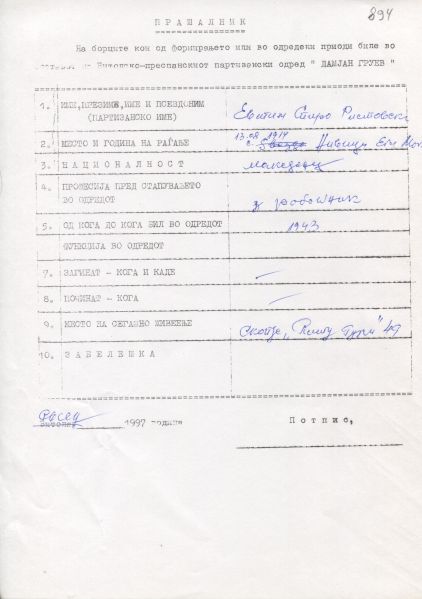 894
ПРАШАЛНИК
На борците кои од формирањето или во одредени приоди биле во
составот на Битолско-преспанскиот партизански одред " ДАМЈАН ГРУЕВ "
1. ИМЕ, ПРЕЗИМЕ, ИМЕ И ПСЕВДОНИМ Евтим Спиро Ристовски
(ПАРТИЗАНСКО ИМЕ)
13.08 1914
2. МЕСТО И ГОДИНА НА РАЃАЊЕ с. Нивици
3. НАЦИОНАЛНОСТ македонец
4. ПРОФЕСИЈА ПРЕД СТАПУВАЊЕТО
ВО ОДРЕДОТ
5. ОД КОГА ДО КОГА БИЛ ВО ОДРЕДОТ 1943
ФУНКЦИЈА ВО ОДРЕДОТ
7. ЗАГИНАТ - КОГА И КАДЕ —
8. ПОЧИНАТ - КОГА —
9. МЕСТО НА СЕГАШНО ЖИВЕЕЊЕ Скопје,
10. ЗАБЕЛЕШКА
Битола, 1997 година
Потпис,